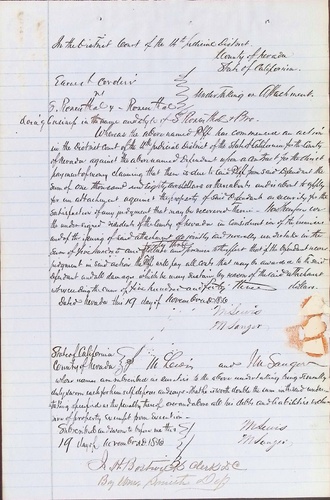 In the District Court of the 14th Judicial District
County of Nevada
State of California
Earnest
vs
Undertaking on Attachment
S. Rosenthal & Rosenthal
doing business in the name and style of S. Rosenthal & Bro.
Whereas the above named Plff has commenced an action
in the District Court of the 14th Judicial District of the State of California for the County
of Nevada against the above named Defendant upon a contract for the direct
payment of money claiming that there is due to said Plff from said Defendant the
sum of one thousand and Eighty dollars or thereabouts and is about to apply
for an attachment against the property of said Defendant as security for the
satisfaction of any judgment that may be recovered therein. Now therefore we
the undersigned residents of the County of Nevada in consideration of the premises
and of the issuing of said attachment do jointly and severally undertake in the
sum of five hundred and forty three dollars to the effect that if the Defendant recover
judgment in said action the Plff will pay all costs that may be awarded to the said
Defendant and all damages which he may sustain by reason of the said attachment
not exceeding the sum of five hundred and forty three dollars.
Dated Nevada this 19 day of November AD 1860
M Lewis
M Sanger
State of California
County of Nevada
M Lewis and M Sanger
whose names are subscribed as sureties to the above undertaking being severally
duly sworn each for himself deposes and says that he is worth double the sum in the said under-
taking specified as the penalty thereof over and above all his debts and liabilities exclusive
of property exempt from execution
Subscribed and sworn to before me this
19 day of November AD 1860
M Lewis
M Sanger
Clerk D C
By Wm Smith Dep